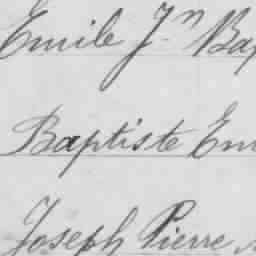 Emile Jn Bap
Baptiste Em
Joseph Pierre